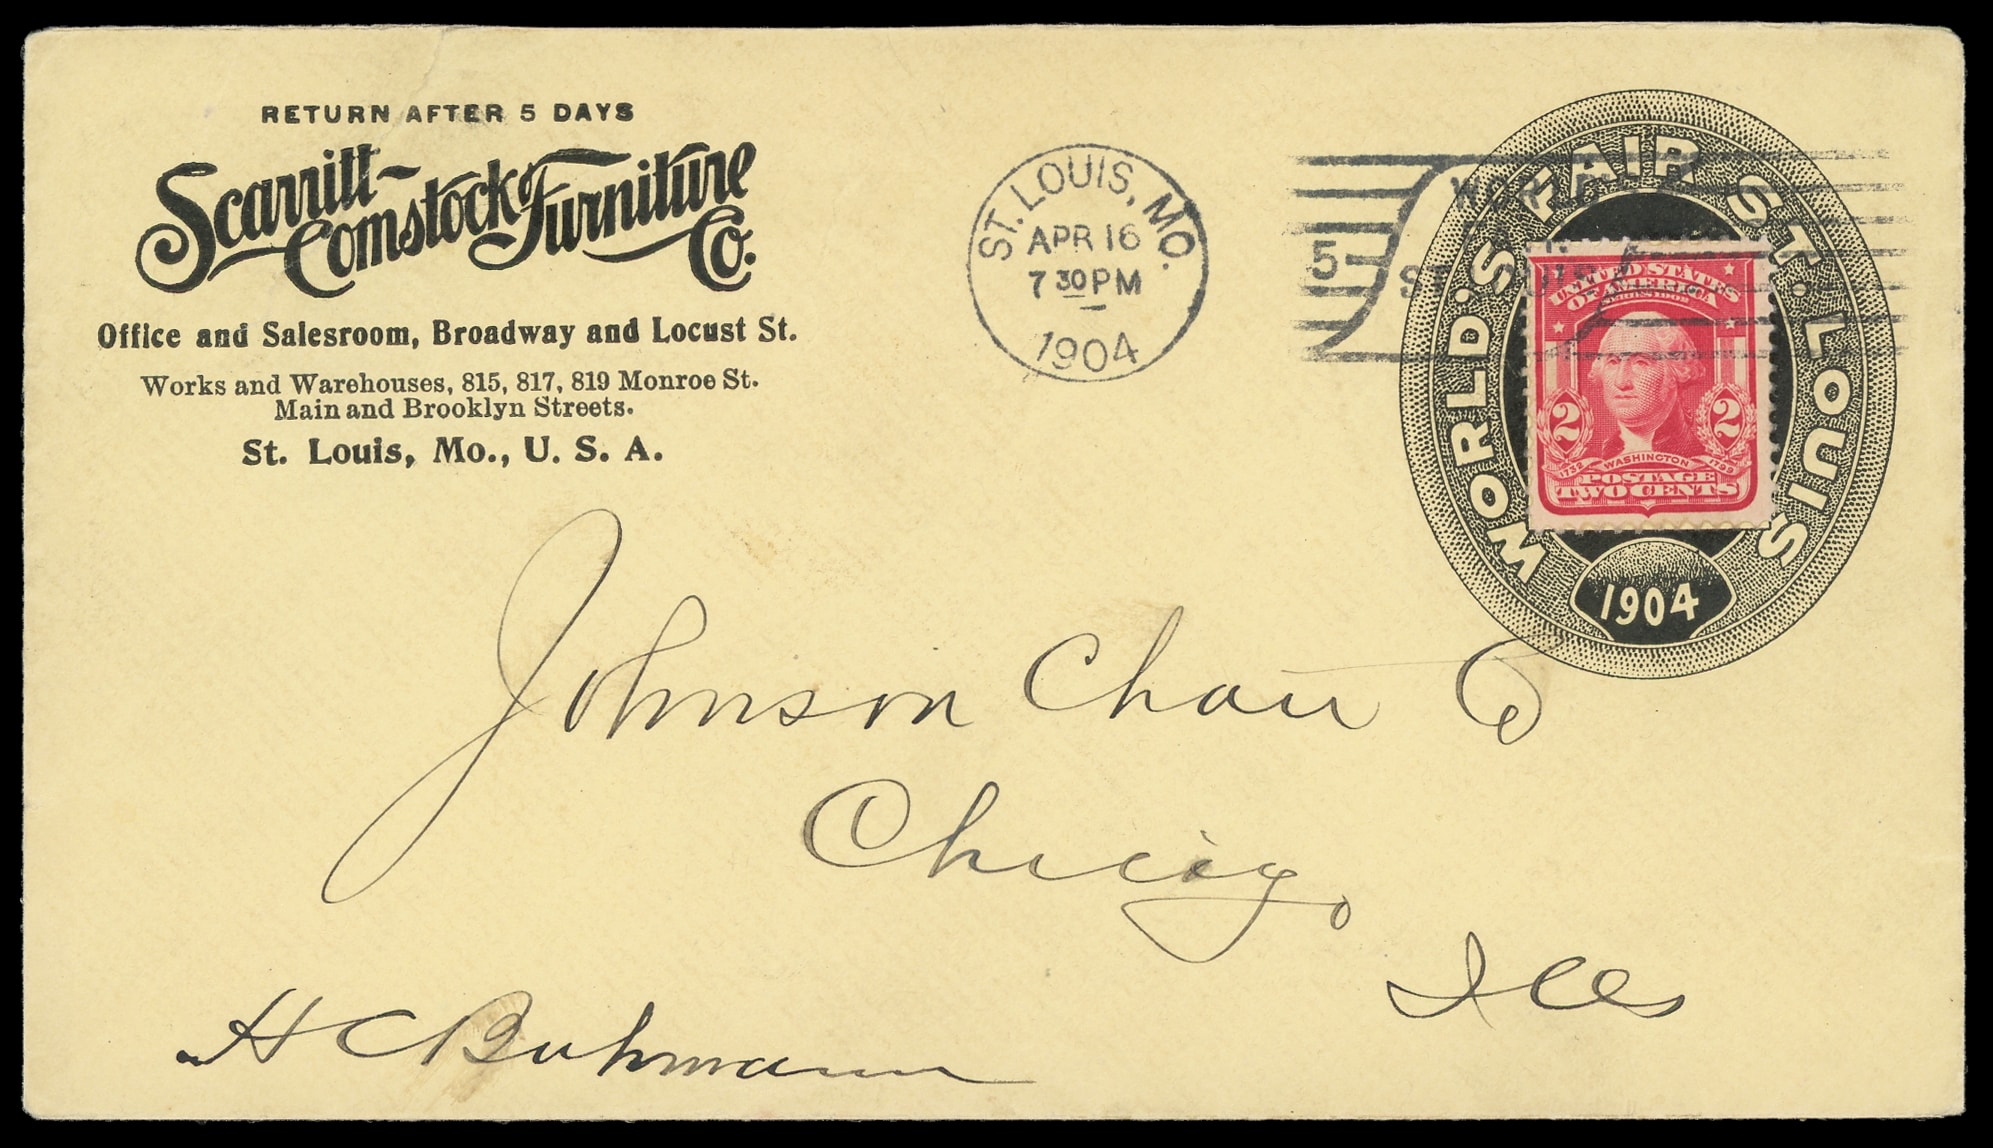 RETURN AFTER 5 DAYS
Scarritt-
Comstock Furniture
Co.
Office and Salesroom, Broadway and Locust St.
Works and Warehouses, 815, 817, 819 Monroe St.
Main and Brooklyn Streets.
St. Louis, Mo., U. S. A.
ST. LOUIS, MO.
APR 16
7 30 PM
1904
5
WORLD'S
ST. LOUIS
WORLD'S FAIR ST. LOUIS
1904
UNITED STATES
OF AMERICA
SERIES 1902
2 2
1732 WASHINGTON 1799
POSTAGE
TWO CENTS
Johnson Chair Co
Chicago
Ills
H C Buhmann